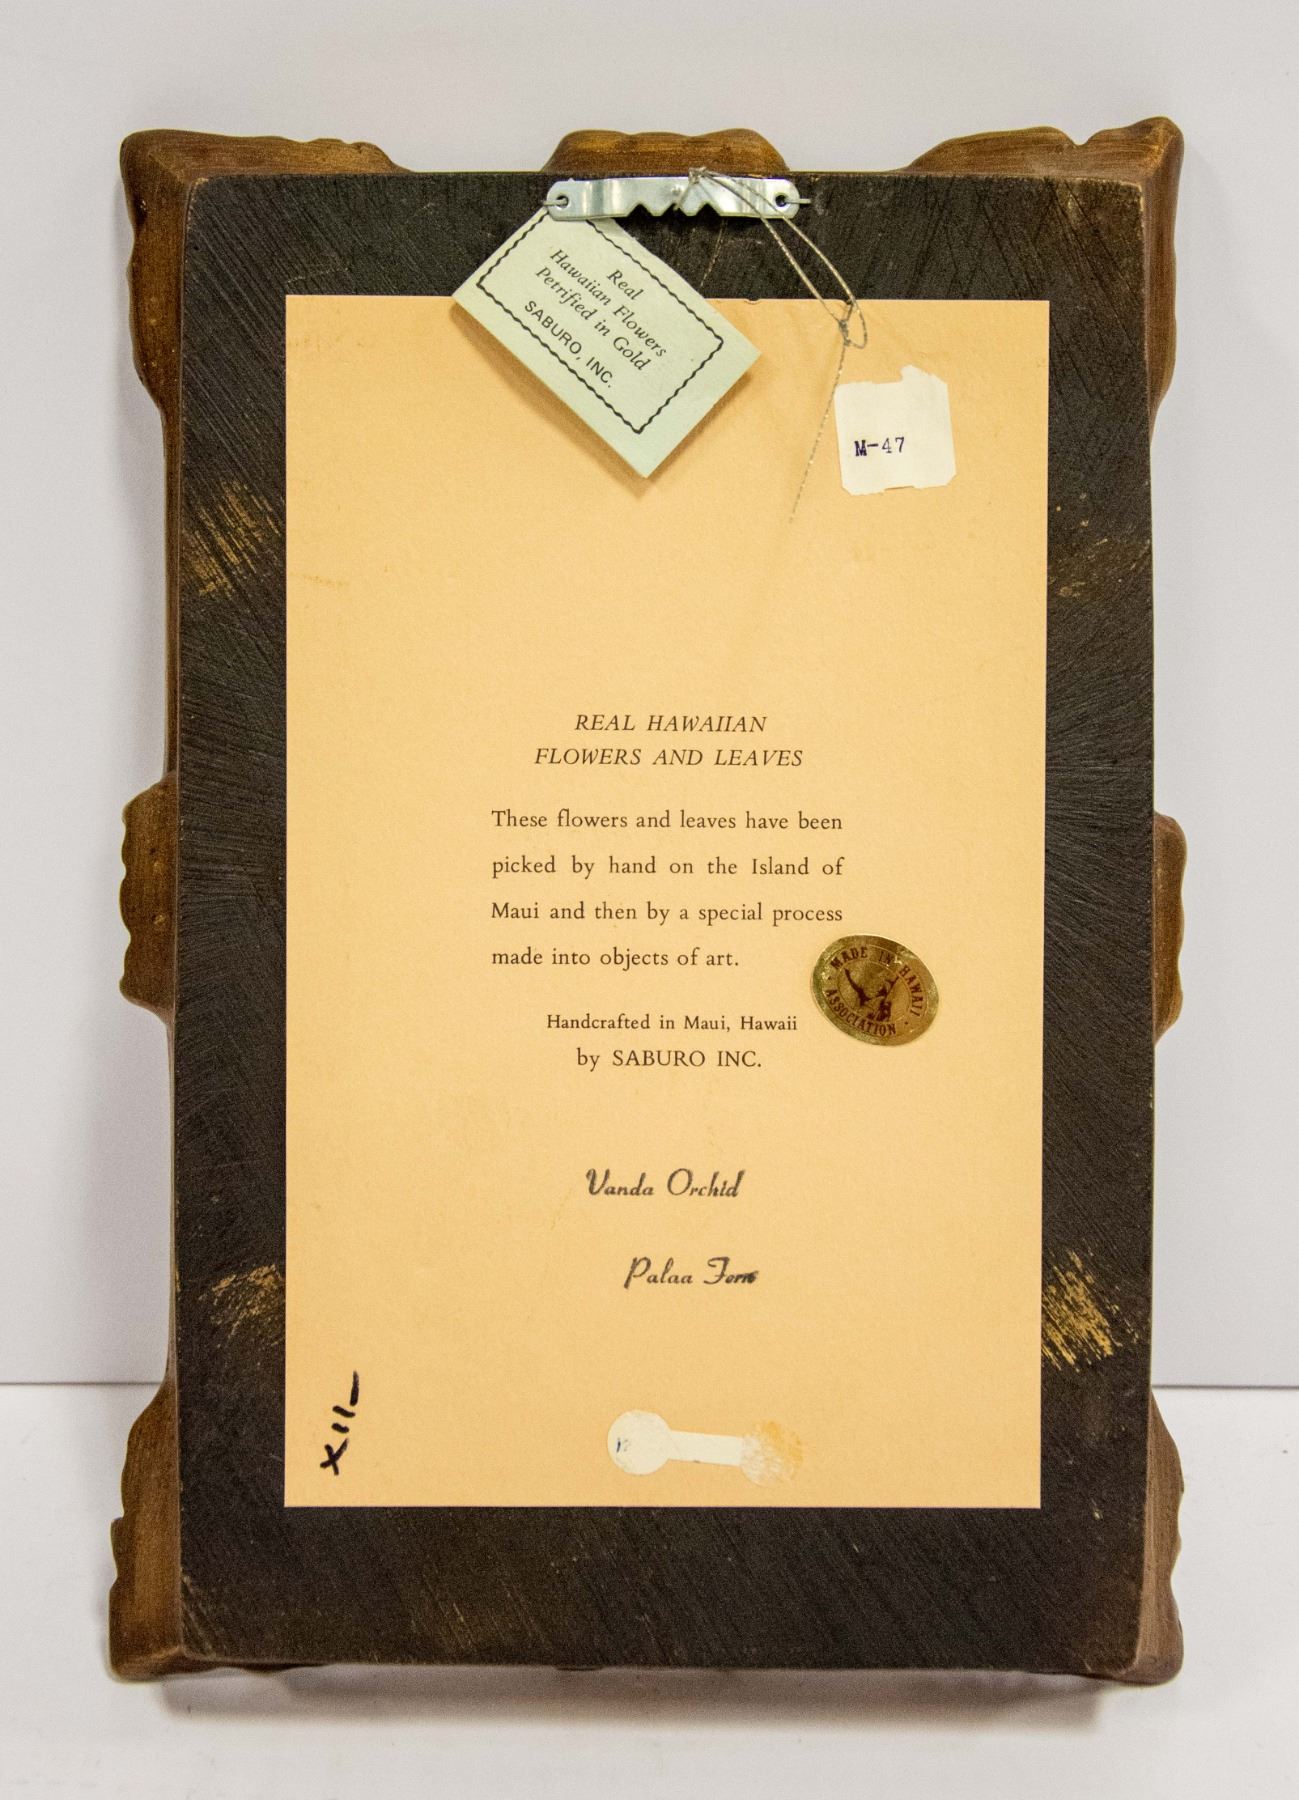 Real
Hawaiian Flowers
Petrified in Gold
SABURO, INC.
M-47
REAL HAWAIIAN
FLOWERS AND LEAVES
These flowers and leaves have been
picked by hand on the Island of
Maui and then by a special process
made into objects of art.
MADE IN HAWAII
ASSOCIATION
Handcrafted in Maui, Hawaii
by SABURO INC.
Vanda Orchid
Palaa Fern